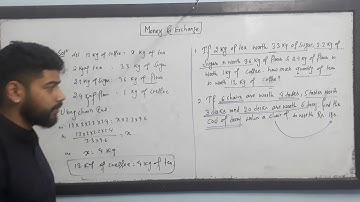 Money & Exchange
Solⁿ let 12 kg of coffee = x kg of tea
2 kg of tea = 3.3 kg of sugar
2.2 kg of sugar = 3.6 kg of flour
2.4 kg of flour = 1 kg of coffee
Using chain rule
x = 4 kg
12 kg of coffee = 4 kg of tea
1. If 2 kg of tea worth 3.3 kg of sugar, 2.2 kg of
sugar is worth 3.6 kg of flour & 2.4 kg of flour is
worth 1 kg of coffee. how much quantity of tea
is worth 12 kg of coffee?
2. If 6 chairs are worth 9 tables, 5 tables worth
3 desks and 20 desks are worth 6 doors, find the
cost of door, when a chair is worth Rs.